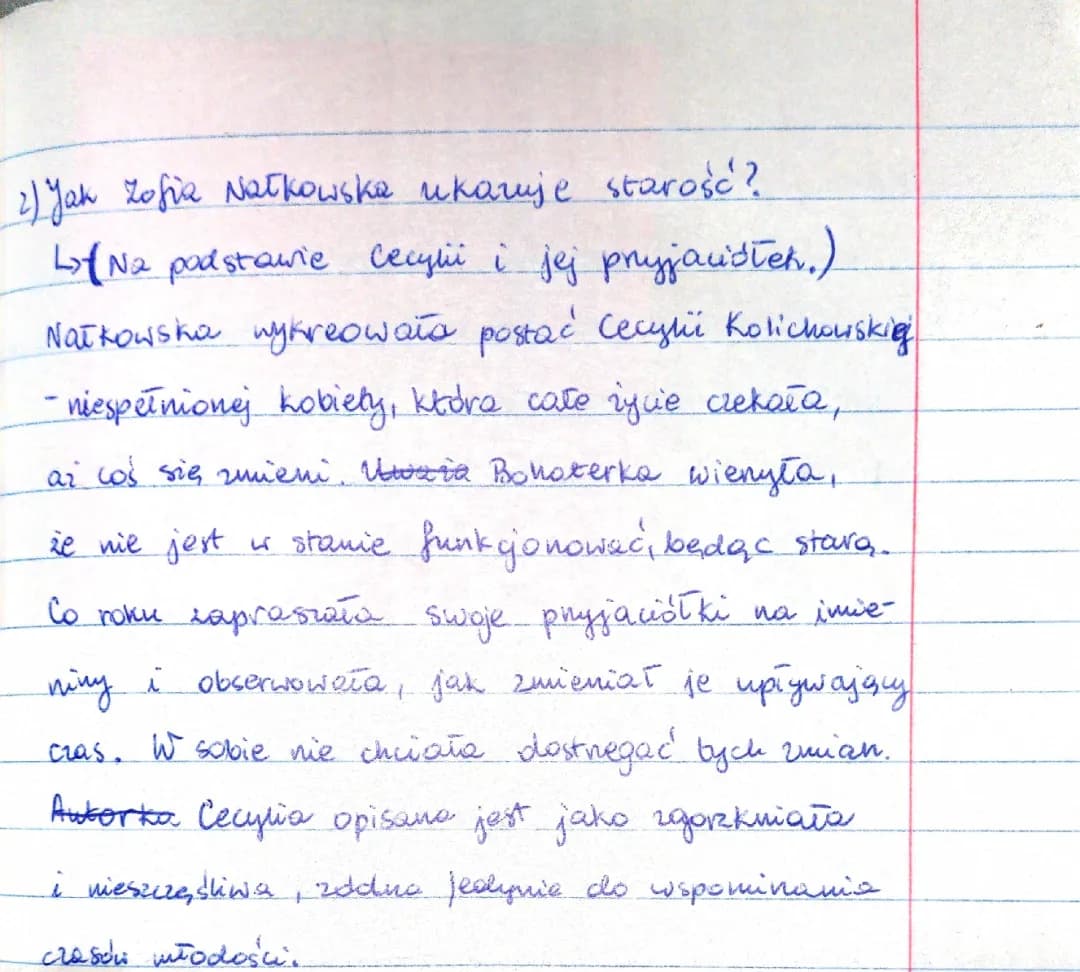 2) Jak Zofia Nałkowska ukazuje starość?
↳ (Na podstawie Cecylii i jej przyjaciółek.)
Nałkowska wykreowała postać Cecylii Kolichowskiej
- niespełnionej kobiety, która całe życie czekała,
aż coś się zmieni. Uważa Bohaterka wierzyła,
że nie jest w stanie funkcjonować, będąc starą.
Co roku zapraszała swoje przyjaciółki na imie-
niny i obserwowała, jak zmieniał je upływający
czas. W sobie nie chciała dostrzegać tych zmian.
Autorka Cecylia opisana jest jako zgorzkniała
i nieszczęśliwa, zdolna jedynie do wspominania
czasów młodości.